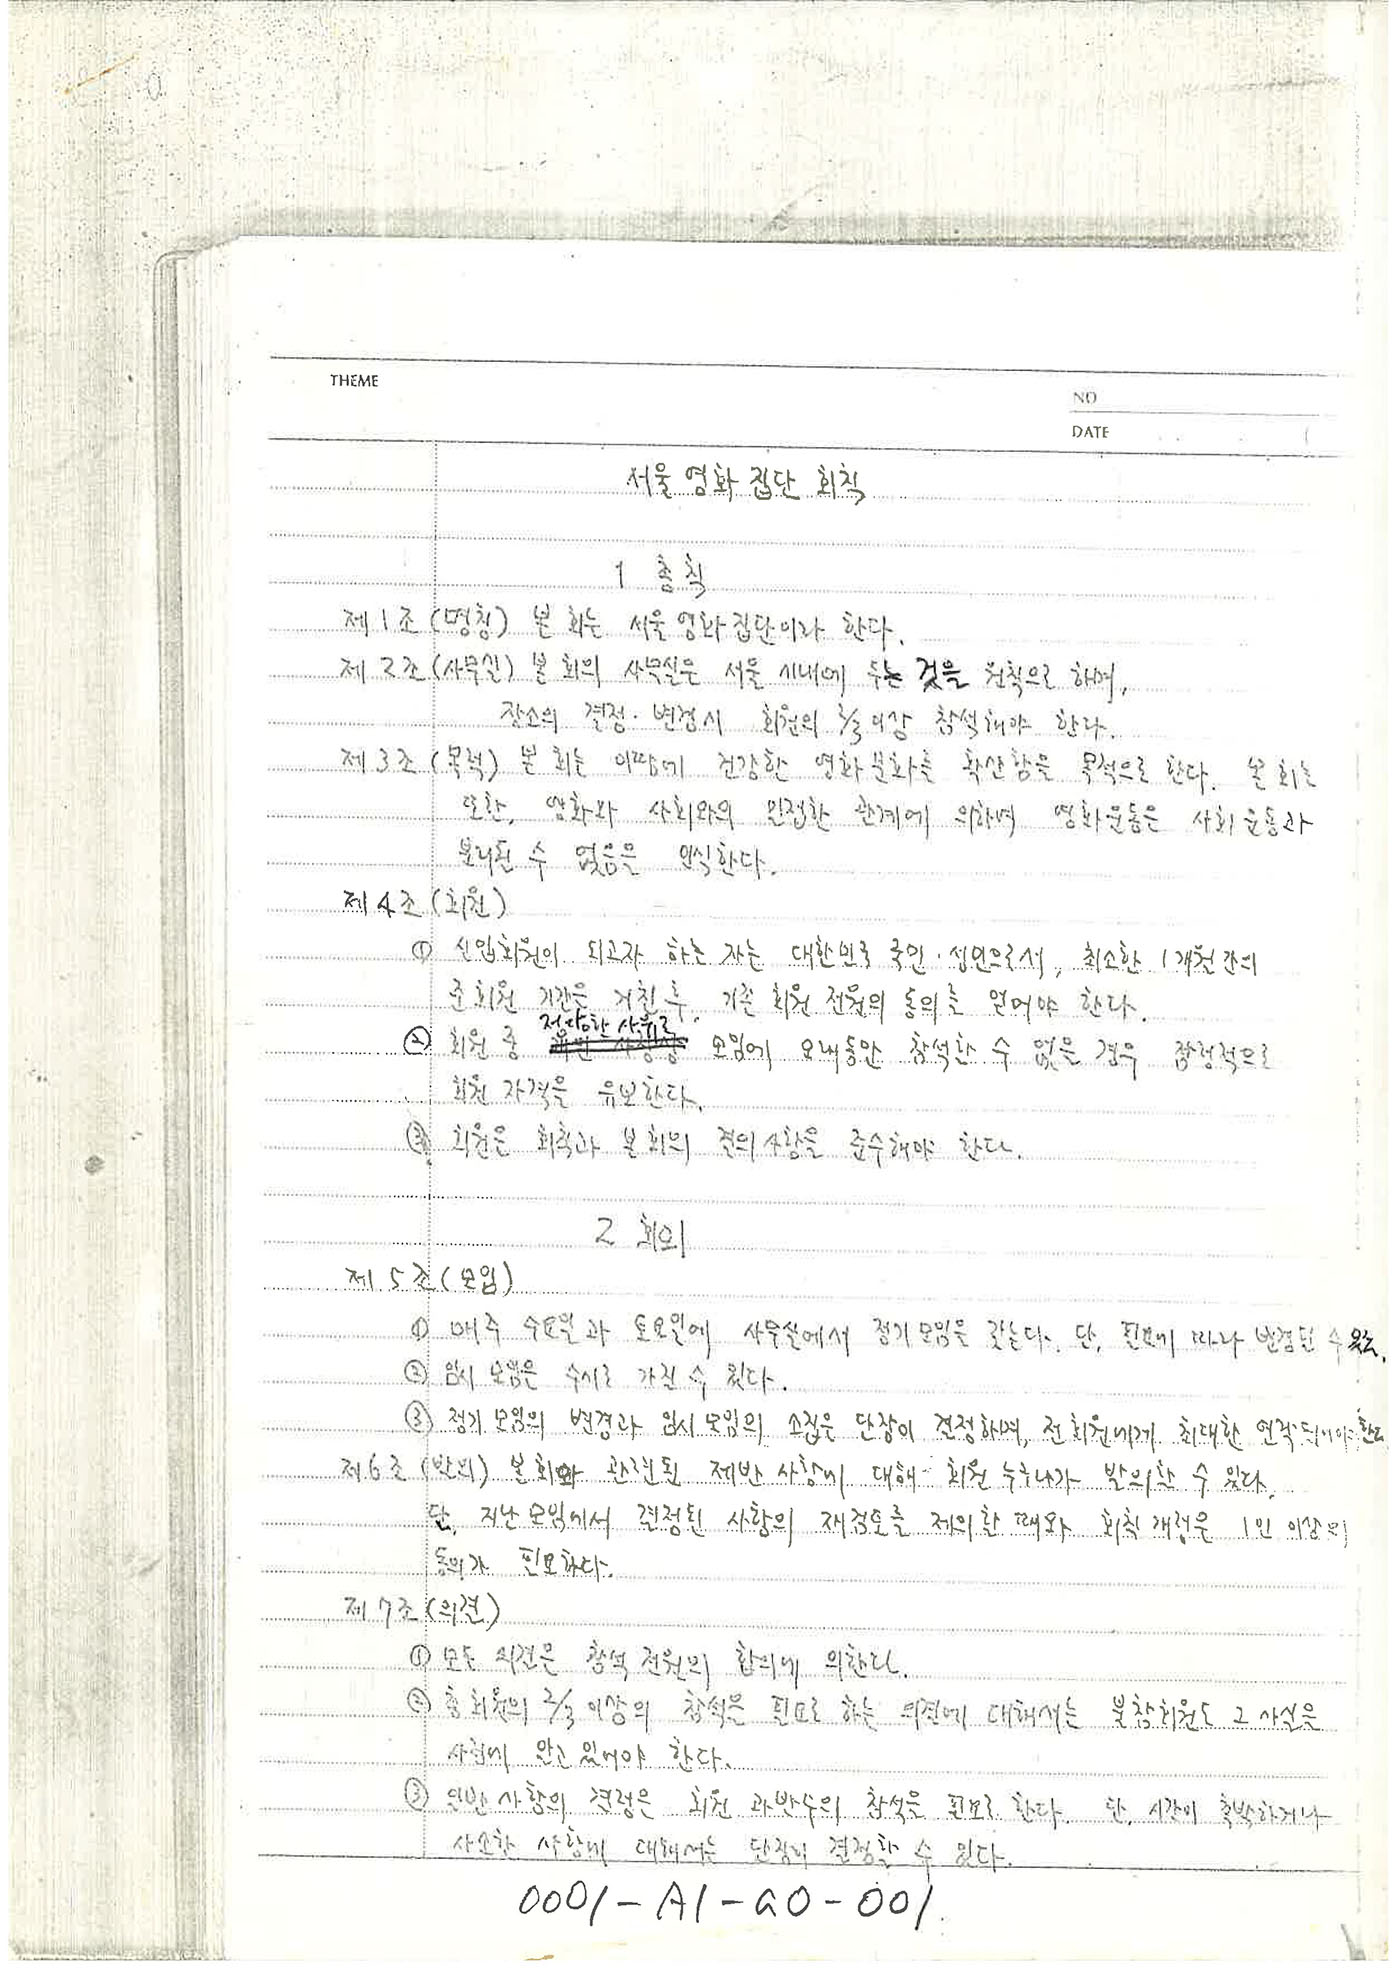 THEME
NO
DATE
서울 영화 집단 회칙
1 총칙
제1조 (명칭) 본 회는 서울 영화 집단이라 한다.
제2조 (사무실) 본 회의 사무실은 서울 시내에 두는 것을 원칙으로 하며,
장소의 결정·변경시 회원의 2/3 이상 참석해야 한다.
제3조 (목적) 본 회는 이땅에 건강한 영화문화를 확산함을 목적으로 한다. 본 회는
또한, 영화와 사회와의 밀접한 관계에 의하여 영화운동은 사회운동과
분리될 수 없음을 인식한다.
제4조 (회원)
① 신입회원이 되고자 하는 자는 대한민국 국민·성인으로서, 최소한 1개월간의
준회원 기간을 거친 후, 기존 회원 전원의 동의를 얻어야 한다.
정당한 사유로
② 회원 중 모임에 오래동안 참석할 수 없을 경우 잠정적으로
회원 자격을 유보한다.
③ 회원은 회칙과 본 회의 결의사항을 준수해야 한다.
2 회의
제5조 (모임)
① 매주 수요일과 토요일에 사무실에서 정기모임을 갖는다. 단, 필요에 따라 변경될 수 있다.
② 임시 모임은 수시로 가질 수 있다.
③ 정기모임의 변경과 임시모임의 소집은 단장이 결정하며, 전회원에게 최대한 연락되어야 한다
제6조 (발의) 본회와 관련된 제반 사항에 대해 회원 누구나가 발의할 수 있다.
단, 지난 모임에서 결정된 사항의 재검토를 제의할 때와 회칙개정은 1인 이상의
동의가 필요하다.
제7조 (의결)
① 모든 의결은 참석 전원의 합의에 의한다.
② 총 회원의 2/3 이상의 참석을 필요로 하는 의결에 대해서는 불참회원도 그 사실을
사전에 알고 있어야 한다.
③ 일반 사항의 결정은 회원 과반수의 참석을 필요로 한다. 단, 시간이 촉박하거나
사소한 사항에 대해서는 단장이 결정할 수 있다.
0001-A1-20-001